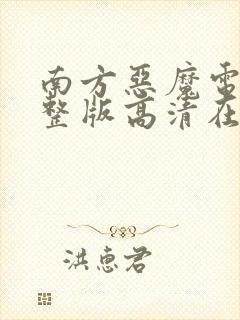 南方恶魔電
整版高清在
洪惠君